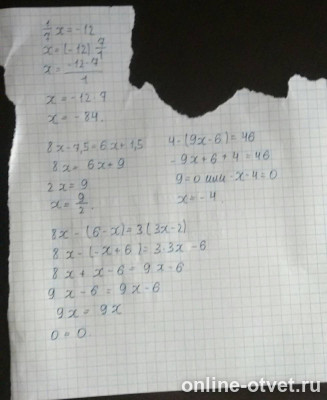 1/7 x = -12
x = (-12) 7/1
x = -12·7/1
x = -12·7
x = -84.
8x-7,5=6x+1,5
8x = 6x+9
2x = 9
x = 9/2.
4-(9x-6)=46
-9x+6+4=46
9=0 или -x-4=0
x=-4
8x-(6-x)=3(3x-2)
8x-(-x+6)=3·3x-6
8x+x-6=9x-6
9x-6=9x-6
9x=9x
0=0.
online-otvet.ru